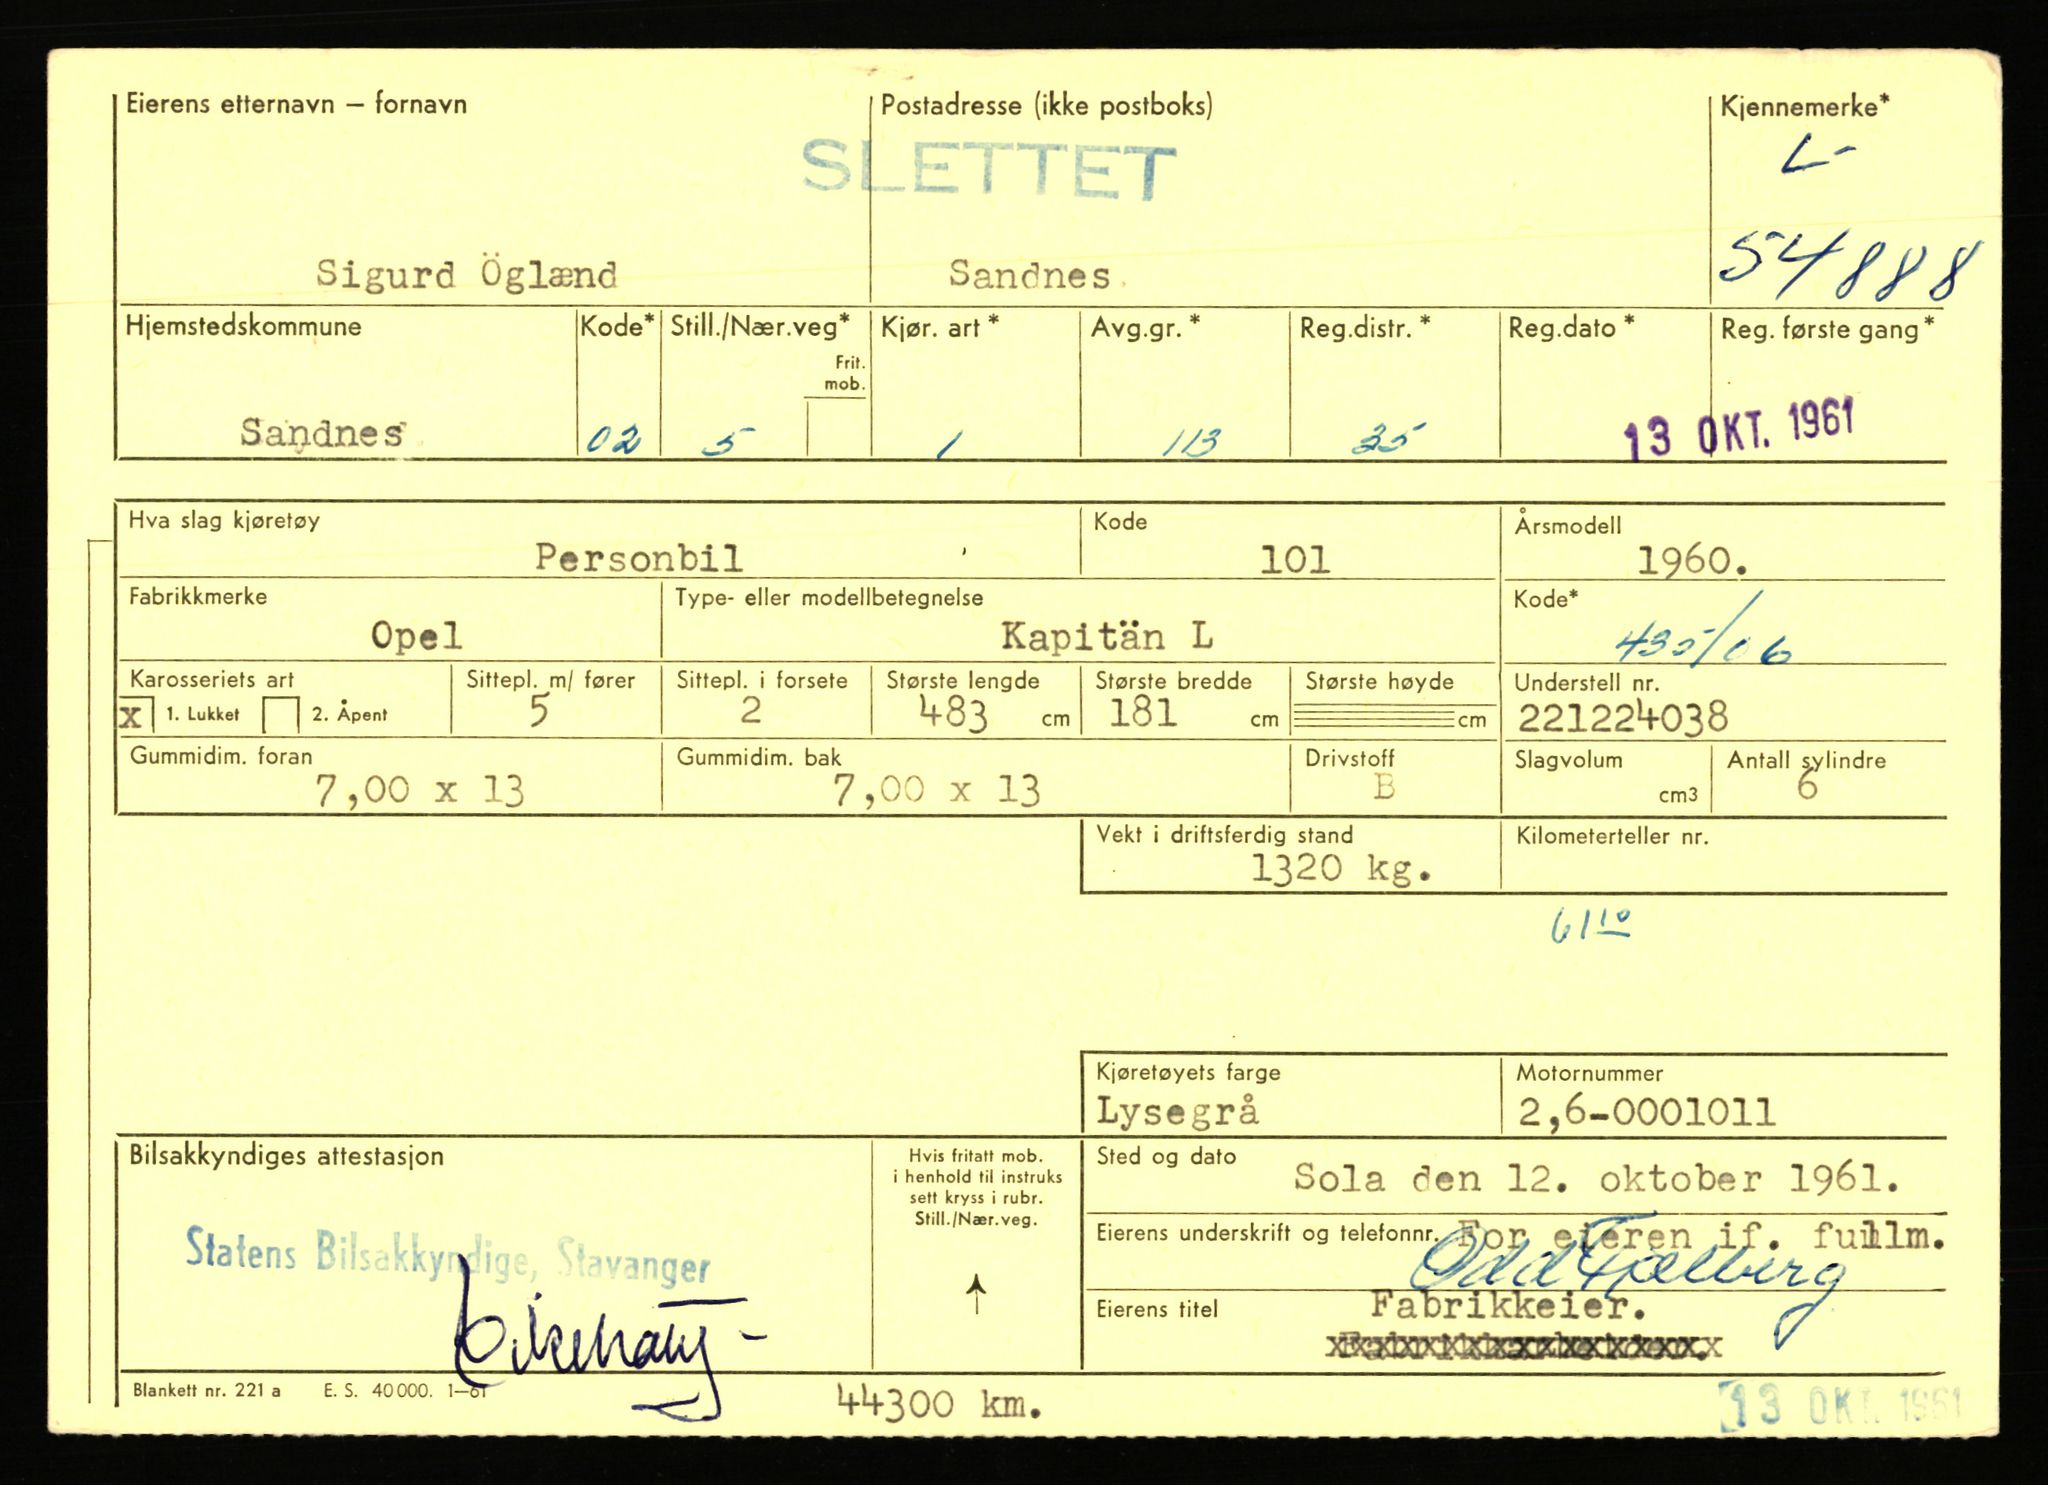 Eierens etternavn – fornavn Postadresse (ikke postboks) Kjennemerke*
SLETTET L-
Sigurd Öglænd Sandnes 54888
Hjemstedskommune Kode* Still./Nær.veg* Kjør. art * Avg.gr. * Reg.distr. * Reg.dato * Reg. første gang *
Frit.
mob.
Sandnes 02 5 1 113 35 13 OKT. 1961
Hva slag kjøretøy Kode Årsmodell
Personbil 101 1960.
Fabrikkmerke Type- eller modellbetegnelse Kode*
Opel Kapitän L 435/06
Karosseriets art Sittepl. m/ fører Sittepl. i forsete Største lengde Største bredde Største høyde Understell nr.
x 1. Lukket 2. Åpent 5 2 483 cm 181 cm cm 221224038
Gummidim. foran Gummidim. bak Drivstoff Slagvolum Antall sylindre
7,00 x 13 7,00 x 13 B cm3 6
Vekt i driftsferdig stand Kilometerteller nr.
1320 kg.
61 10
Kjøretøyets farge Motornummer
Lysegrå 2,6-0001011
Bilsakkyndiges attestasjon Hvis fritatt mob. Sted og dato
i henhold til instruks Sola den 12. oktober 1961.
sett kryss i rubr.
Still./Nær.veg.
Eierens underskrift og telefonnr. For eieren if. fullm.
Statens Bilsakkyndige, Stavanger
Odd
Eierens titel Fabrikkeier.
Blankett nr. 221 a E. S. 40 000. 1—61 44300 km. 13 OKT. 1961